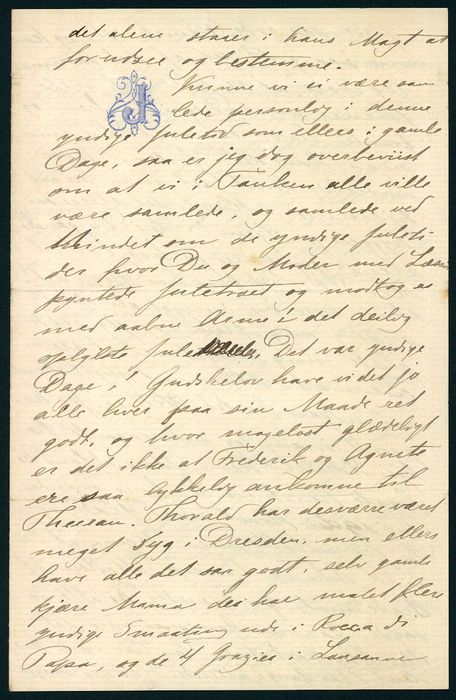 det alene staaer i hans Magt at
forudsee og bestemme.
J
Kunne vi ei være sam
lede personlig i denne
yndige Juletid som ellers i gamle
Dage, saa er jeg dog overbeviist
om at vi i Tanken alle ville
være samlede, og samlede ved
Mindet om de yndige Juleti-
der hvor Du og Moder med
pyntede Juletræet og modtog os
med aabne Arme i det deilig
oplyste Det var yndige
Dage! Gudskelov have vi det jo
alle hver paa sin Maade ret
godt, og hvor mageløst glædeligt
er det ikke at Frederik og Agnete
ere saa lykkelig ankomne til
Thorald har desværre været
meget syg i Dresden, men ellers
have alle det saa godt, selv gamle
kjære Mama der har malet flere
yndige Smaating ude i Rocca di
Papa, og de 4 Grazier i Lausanne